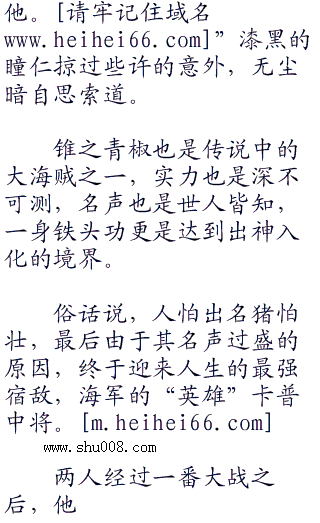 他。[请牢记住域名
www.heihei66.com]”漆黑的
瞳仁掠过些许的意外，无尘
暗自思索道。
锥之青椒也是传说中的
大海贼之一，实力也是深不
可测，名声也是世人皆知，
一身铁头功更是达到出神入
化的境界。
俗话说，人怕出名猪怕
壮，最后由于其名声过盛的
原因，终于迎来人生的最强
宿敌，海军的“英雄”卡普
中将。[m.heihei66.com]
www.shu008.com
两人经过一番大战之
后，他